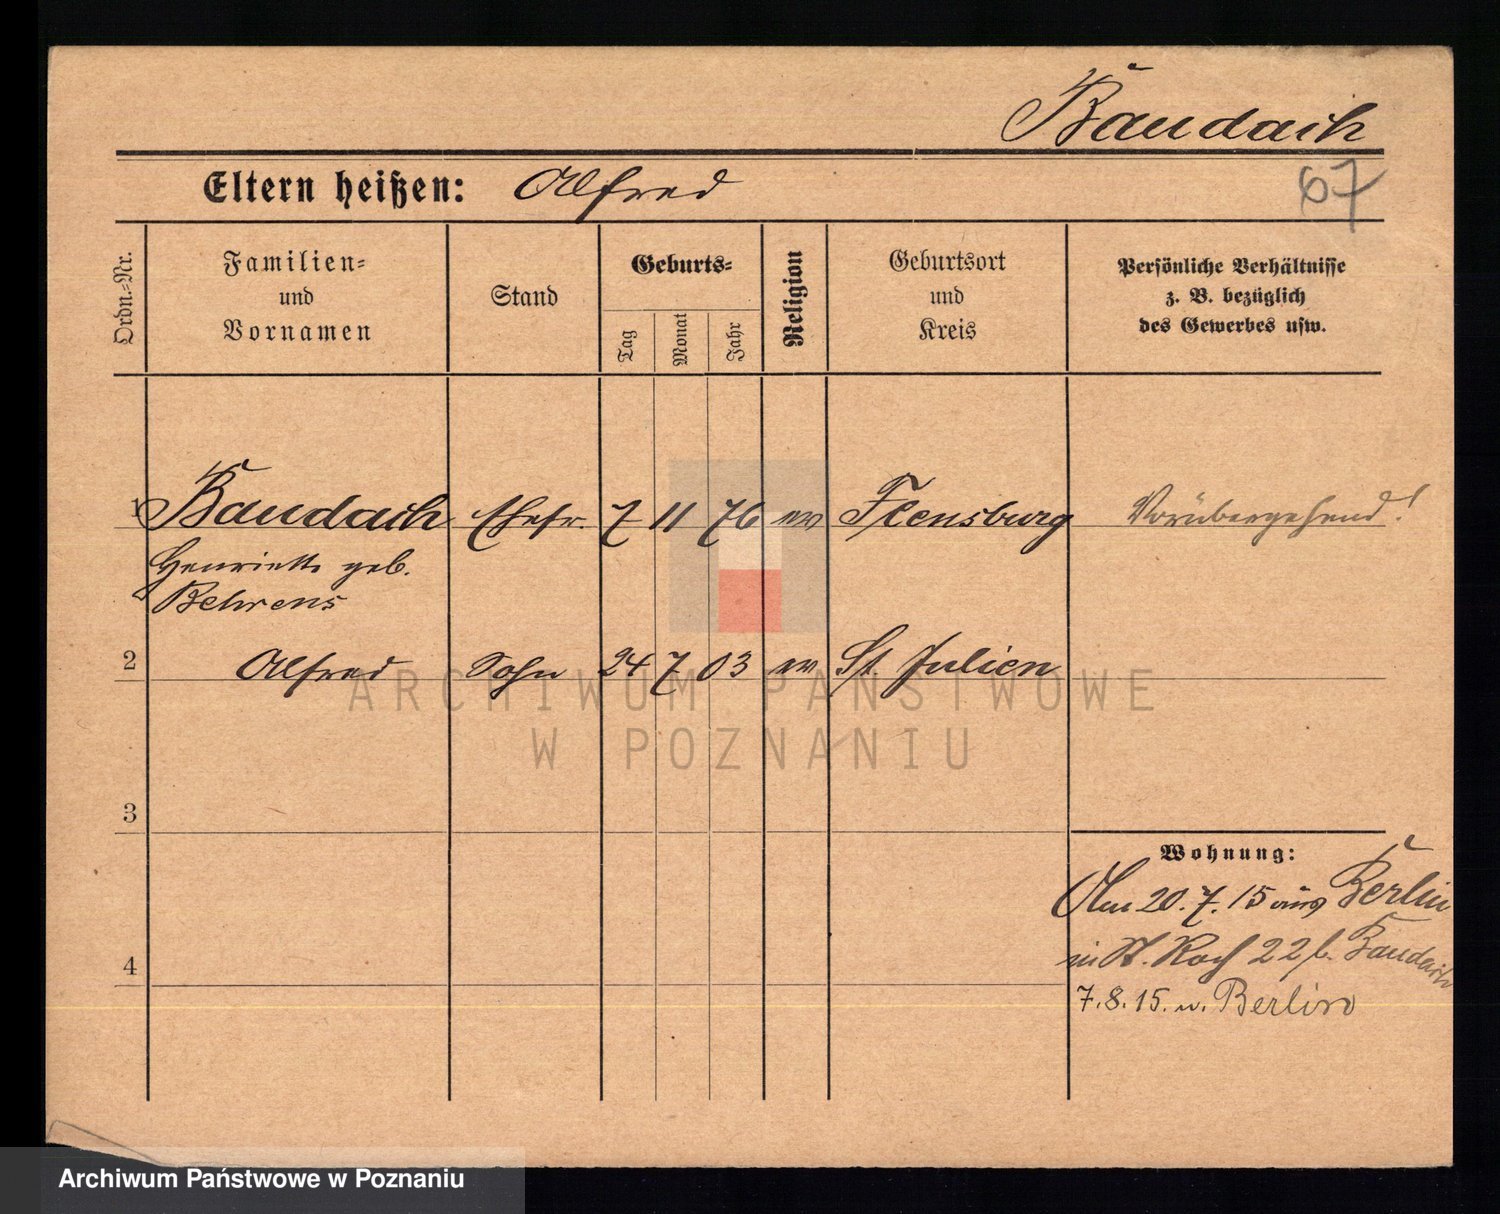 Baudach
67
Eltern heißen: Alfred
Ordn.-Nr.
Familien-
und
Vornamen
Stand
Geburts-
Tag
Monat
Jahr
Religion
Geburtsort
und
Kreis
Persönliche Verhältnisse
z. B. bezüglich
des Gewerbes usw.
1 Baudach Ehefr. 7 11 76 ev Flensburg Vorübergehend!
Henriette geb.
Behrens
2 Alfred Sohn 24 7 03 ev St. Julien
ARCHIWUM PAŃSTWOWE
W POZNANIU
3
Wohnung:
Am 20.7.15 aus Berlin
in St. Roch 22 b. Baudach
4
7.8.15. n. Berlin
Archiwum Państwowe w Poznaniu